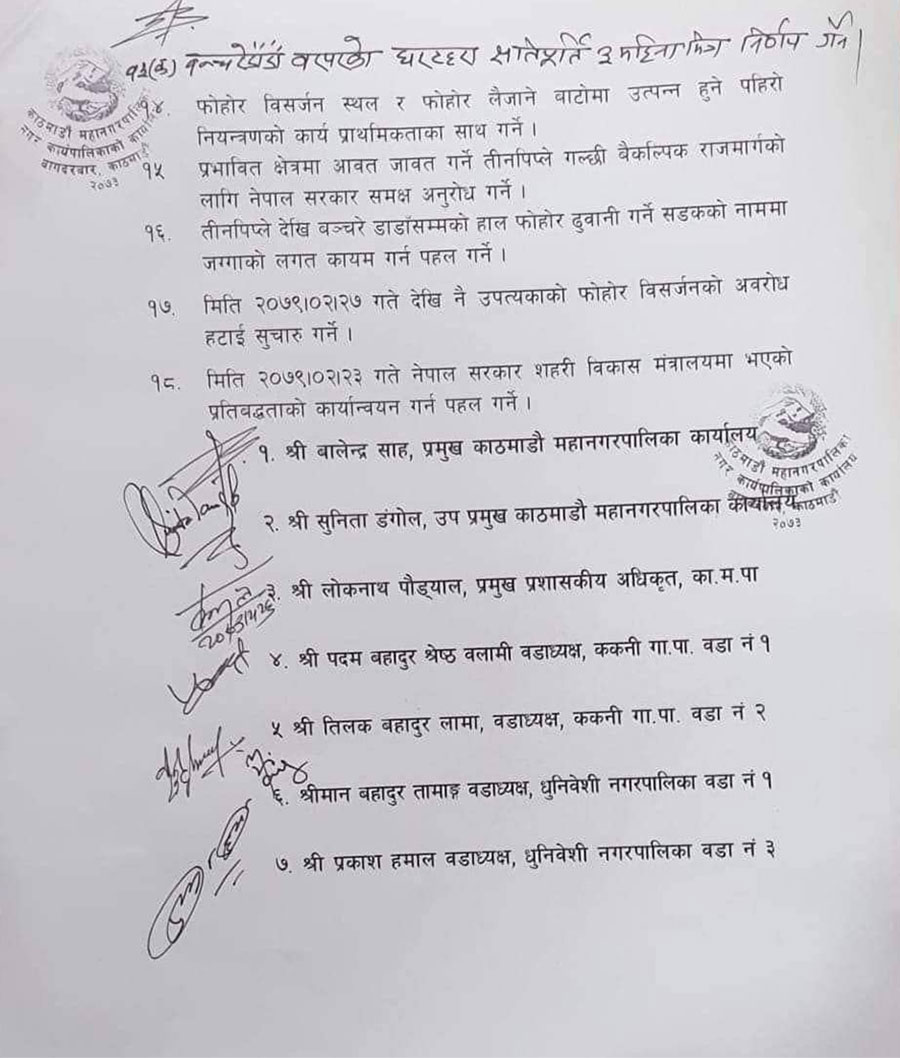 १३(क) बन्चरेडाँडा वरपरको घरटहरा क्षतिपूर्ति ३ महिना भित्र निर्णय गर्ने।
काठमाडौं महानगरपालिका
नगर कार्यपालिकाको कार्यालय
बागदरबार, काठमाडौं
२०७३
१४. फोहोर विसर्जन स्थल र फोहोर लैजाने बाटोमा उत्पन्न हुने पहिरो
नियन्त्रणको कार्य प्राथमिकताका साथ गर्ने ।
१५ प्रभावित क्षेत्रमा आवत जावत गर्ने तीनपिप्ले गल्छी बैकल्पिक राजमार्गको
लागि नेपाल सरकार समक्ष अनुरोध गर्ने ।
१६. तीनपिप्ले देखि वञ्चरे डाडाँसम्मको हाल फोहोर ढुवानी गर्ने सडकको नाममा
जग्गाको लगत कायम गर्न पहल गर्ने ।
१७. मिति २०७९।०२।२७ गते देखि नै उपत्यकाको फोहोर विसर्जनको अवरोध
हटाई सुचारु गर्ने ।
१८. मिति २०७९।०२।२३ गते नेपाल सरकार शहरी विकास मंत्रालयमा भएको
प्रतिबद्धताको कार्यान्वयन गर्न पहल गर्ने ।
१. श्री बालेन्द्र साह, प्रमुख काठमाडौ महानगरपालिका कार्यालय
काठमाडौं महानगरपालिका
नगर कार्यपालिकाको कार्यालय
काठमाडौं
२०७३
२. श्री सुनिता डंगोल, उप प्रमुख काठमाडौ महानगरपालिका कार्यालय
३. श्री लोकनाथ पौड्याल, प्रमुख प्रशासकीय अधिकृत, का.म.पा
४. श्री पदम बहादुर श्रेष्ठ वलामी वडाध्यक्ष, ककनी गा.पा. वडा नं १
५ श्री तिलक बहादुर लामा, वडाध्यक्ष, ककनी गा.पा. वडा नं २
६. श्रीमान बहादुर तामाङ्ग वडाध्यक्ष, धुनिवेशी नगरपालिका वडा नं १
७. श्री प्रकाश हमाल वडाध्यक्ष, धुनिवेशी नगरपालिका वडा नं ३